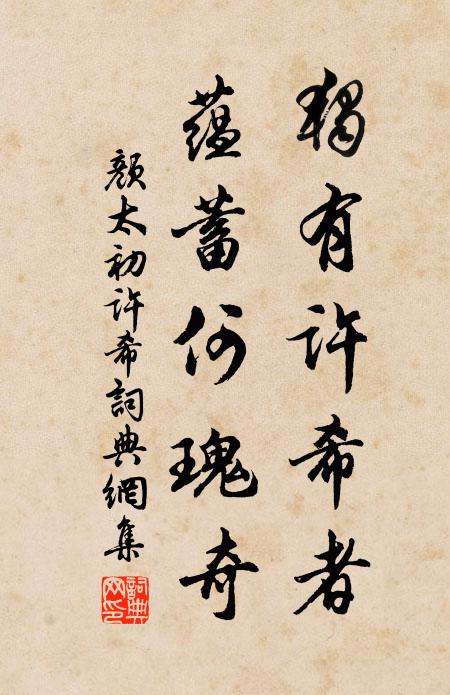 獨有許希者
蘊蓄何瑰奇
顏太初許希詞典網集
詞典
網印